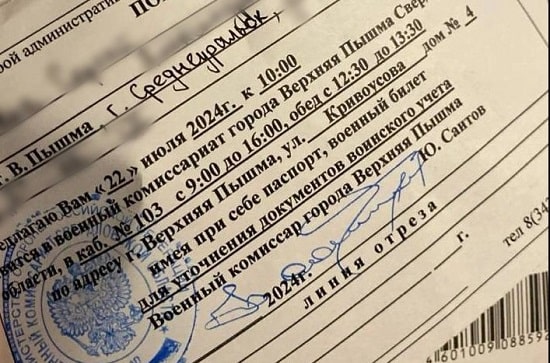 ПО
рой административн
г. В. Пышма, г. Среднеуральск,
едлагаю Вам «22» июля 2024г. к 10:00
виться в военный комиссариат города Верхняя Пышма Свер
области, в каб. № 103 с 9:00 до 16:00, обед с 12:30 до 13:30
по адресу г. Верхняя Пышма, ул. Кривоусова дом № 4
имея при себе паспорт, военный билет
для уточнения документов воинского учета
Военный комиссар города Верхняя Пышма
Ю. Саитов
2024г.
линия отреза
г.
тел 8(34
4601009088592